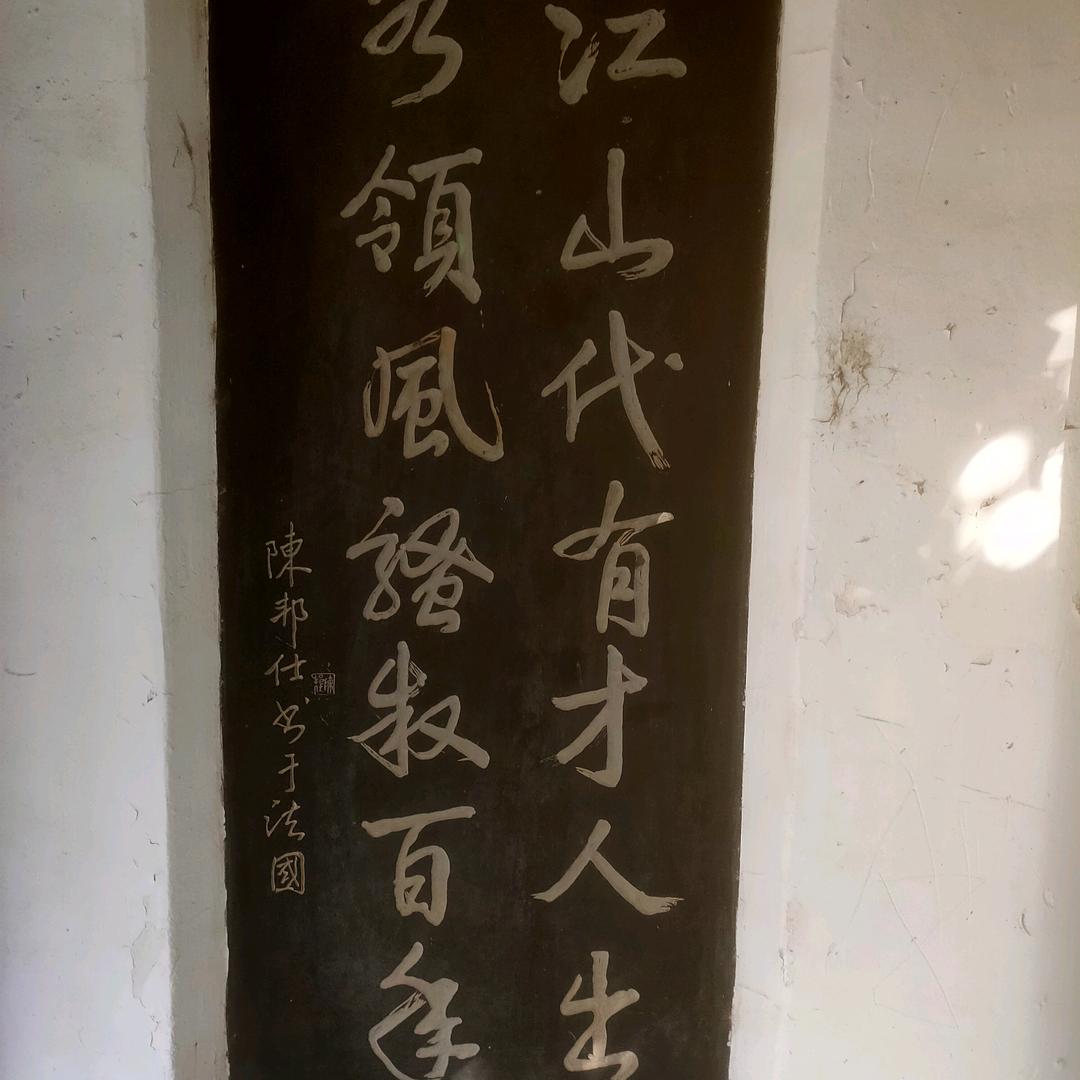 江山代有才人出
各領風騷数百年
陳邦仕书于法國